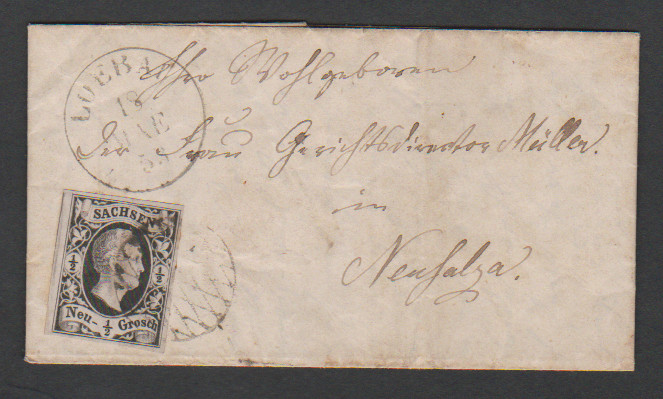 LOEBAU
18
MAE
53
Ihro Wohlgeboren
der Frau Gerichtsdirector Müller.
in
Neusalza.
SACHSEN
½ ½
Neu- ½ Grosch